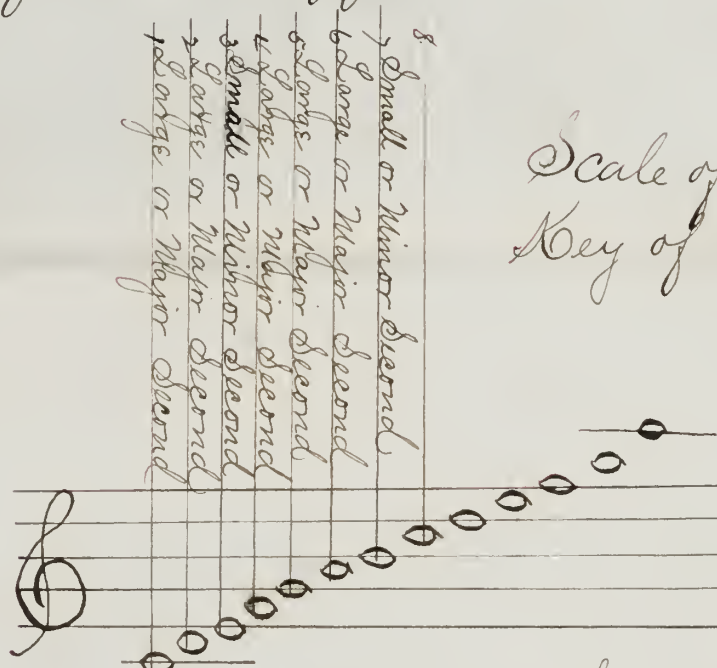 8.
7 Small or Minor Second
6 Large or Major Second
5 Large or Major Second
4 Large or Major Second
3 Small or Minor Second
2 Large or Major Second
1 Large or Major Second
Scale of
Key of